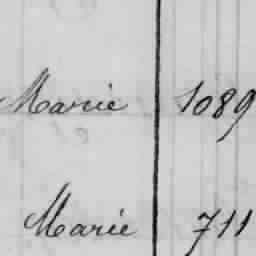 Marie 1089
Marie 711